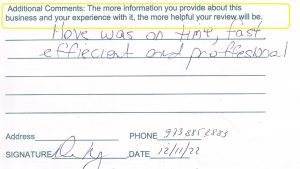 Additional Comments: The more information you provide about this
business and your experience with it, the more helpful your review will be.
Move was on time, fast
effiecient and proffesional
Address
PHONE 973 885 2883
SIGNATURE DATE 12/11/22